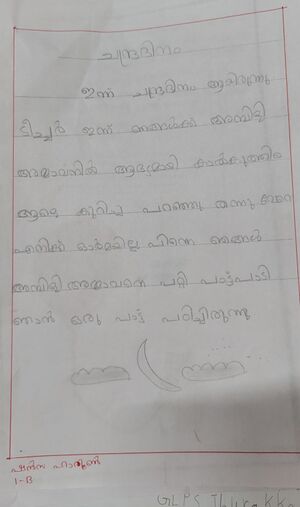 ചാന്ദ്രദിനം
ഇന്ന് ചാന്ദ്രദിനം ആയിരുന്നു
ടീച്ചർ ഇന്ന് ഞങ്ങൾക്ക് അമ്പിളി
അമ്മാവനിൽ ആദ്യമായി കാൽകുത്തിയ
ആളെ കുറിച്ച് പറഞ്ഞു തന്നു
എനിക്ക് ഓർമയില്ല പിന്നെ ഞങ്ങൾ
അമ്പിളി അമ്മാവനെ പറ്റി പാട്ട്പാടി
ഞാൻ ഒരു പാട്ട് പഠിച്ചിരുന്നു
1-B
GLPS